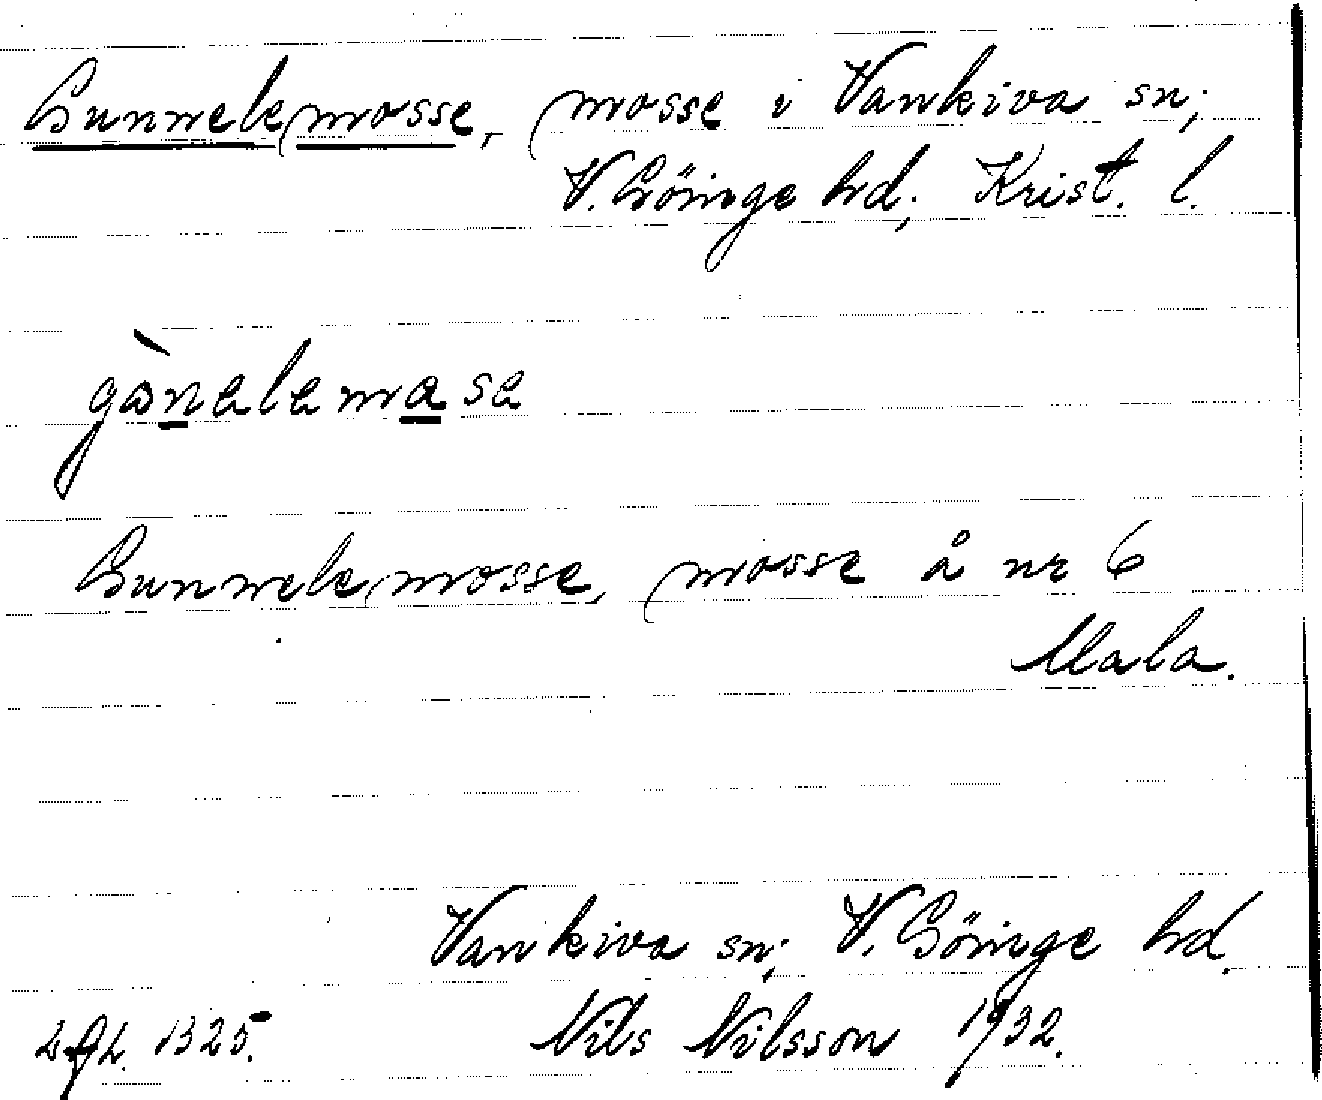 Gunnelemosse, mosse i Vankiva sn;
V. Göinge hd; Krist. l.
gònelemase
Gunnelemosse, mosse å nr 6
Mala.
Vankiva sn; V. Göinge hd.
1325. Nils Nilsson 1932.